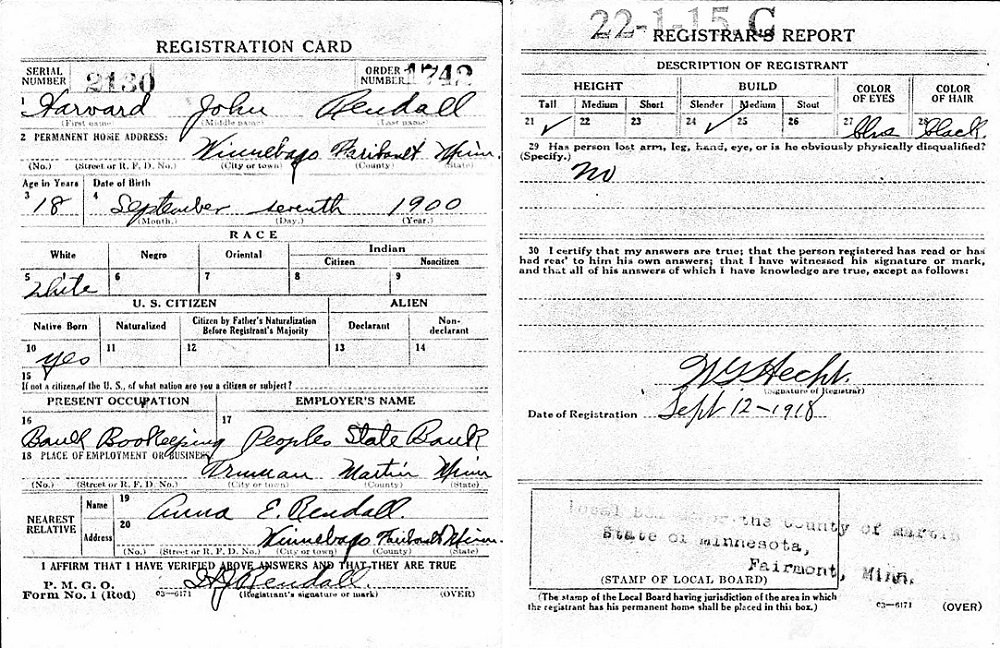 REGISTRATION CARD
SERIAL NUMBER 2130 ORDER NUMBER 1742
1 Harvard John Rendall
(First name) (Middle name) (Last name)
2 PERMANENT HOME ADDRESS:
Winnebago Faribault Minn.
(No.) (Street or R. F. D. No.) (City or town) (County) (State)
Age in Years Date of Birth
3 18 4 September seventh 1900
(Month.) (Day.) (Year.)
RACE
White Negro Oriental Indian
Citizen Noncitizen
5 White 6 7 8 9
U. S. CITIZEN ALIEN
Native Born Naturalized Citizen by Father's Naturalization Before Registrant's Majority Declarant Non-declarant
10 yes 11 12 13 14
15
If not a citizen of the U. S., of what nation are you a citizen or subject?
PRESENT OCCUPATION EMPLOYER'S NAME
16 Bank Bookeeping 17 Peoples State Bank
18 PLACE OF EMPLOYMENT OR BUSINESS
Truman Martin Minn
(No.) (Street or R. F. D. No.) (City or town) (County) (State)
NEAREST RELATIVE Name 19 Anna E. Rendall.
Address 20 Winnebago Faribault Minn.
(No.) (Street or R. F. D. No.) (City or town) (County) (State)
I AFFIRM THAT I HAVE VERIFIED ABOVE ANSWERS AND THAT THEY ARE TRUE
P. M. G. O.
Form No. 1 (Red) 03—6171 H J Rendall. (Registrant's signature or mark) (OVER)
22-1-15 C
REGISTRAR'S REPORT
DESCRIPTION OF REGISTRANT
HEIGHT BUILD COLOR OF EYES COLOR OF HAIR
Tall Medium Short Slender Medium Stout
21 ✓ 22 23 24 ✓ 25 26 27 Blue 28 Black.
29 Has person lost arm, leg, hand, eye, or is he obviously physically disqualified?
(Specify.)
No
30 I certify that my answers are true; that the person registered has read or has
had read to him his own answers; that I have witnessed his signature or mark,
and that all of his answers of which I have knowledge are true, except as follows:
W G Hecht.
(Signature of Registrar)
Date of Registration Sept 12-1918
Local Board for the County of Martin
State of Minnesota,
Fairmont, Minn.
(STAMP OF LOCAL BOARD)
(The stamp of the Local Board having jurisdiction of the area in which
the registrant has his permanent home shall be placed in this box.)
03—6171 (OVER)